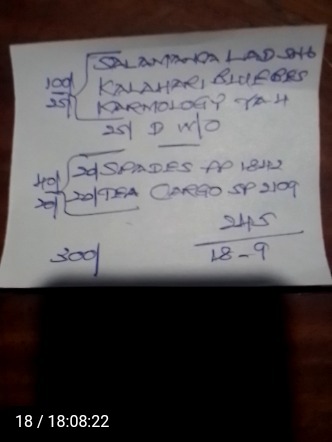 SALAMANCA LAD SH6
100/ KALAHARI BLUE BES
25/ KARMOLOGY TA4
25/ D W/O
40/ 20/ SPADES AP 1842
20/ 20/ TEA CARGO SP 2109
245
300/ 18-9
18 / 18:08:22